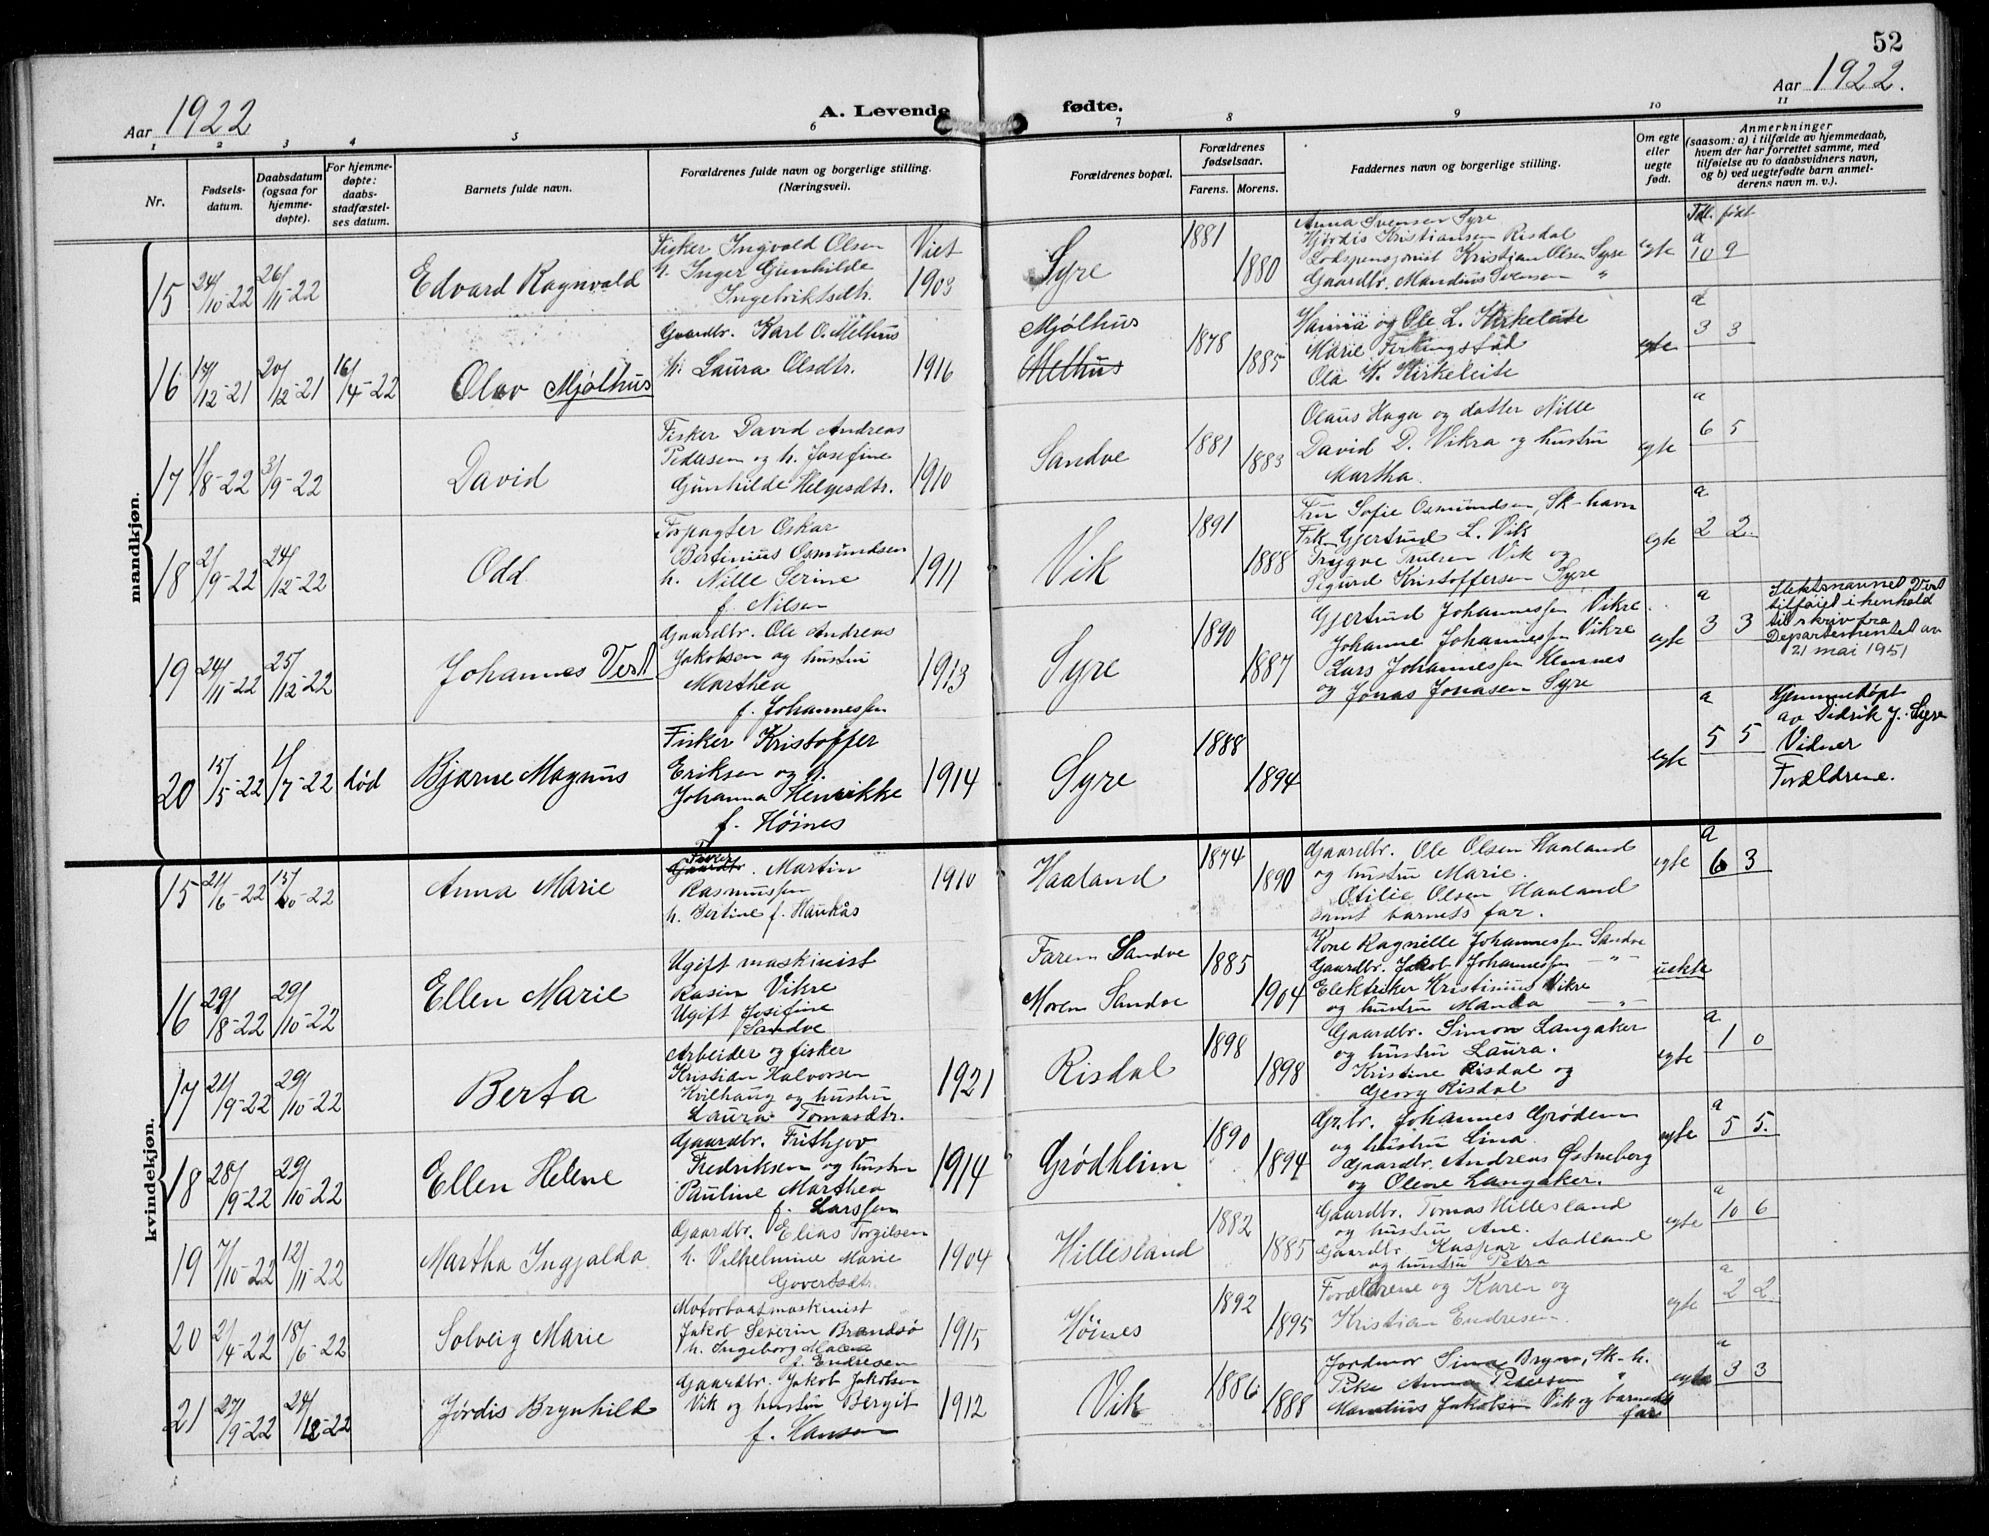 52
Aar 1922
A. Levende fødte.
Aar 1922.
1 2 3 4 5 6 7 8 9 10 11
Nr.
Fødsels-
datum.
Daabsdatum
(ogsaa for
hjemme-
døpte).
For hjemme-
døpte:
daabs-
stadfæstel-
ses datum.
Barnets fulde navn.
Forældrenes fulde navn og borgerlige stilling.
(Næringsvei).
Forældrenes bopæl.
Forældrenes
fødselsaar.
Farens. Morens.
Faddernes navn og borgerlige stilling.
Om egte
eller
uegte
født.
Anmerkninger
(saasom: a) i tilfælde av hjemmedaab,
hvem der har forrettet samme, med
tilføielse av to daabsvidners navn,
og b) ved uegtefødte barn anmel-
derens navn m. v.).
mandkjøn.
15 24/10-22 26/11-22
Edvard Ragnvald
Fisker Ingvald Olsen
h. Inger Gunhilde
Ingebriktsdtr.
Viet
1903
Syre
1881
1880
Anna Svensen Syre
Hjørdis Kristiansen Risdal
Lodspensjonist Kristian Olsen Syre
Gaardbr. Mandius Svensen "
egte
Tdl. født
a
10 9
16 17/12-21 20/12-21 16/4-22
Olav Mjølhus
Gaardbr. Karl O. Melhus
h. Laura Olsdtr.
1916
Mjølhus
Melhus
1878
1885
Hanna og Ole L. Kirkeleite
Marie Ferkingstad
Ola K. Kirkeleite
egte
a
3 3
17 11/8-22 3/9-22
David
Fisker David Andreas
Pedersen og h. Josefine
Gunhilde Helgesdtr.
1910
Sandve
1881
1883
Olaus Haga og datter Nille
David D. Vikra og hustru
Martha.
egte
a
6 5
18 2/9-22 24/12-22
Odd
Forpagter Oskar
Bertinius Osmundsen
h. Nille Serine
f. Nilsen
1911
Vik
1891
1888
Fru Sofie Osmundsen, Sk-havn
Frk. Gjertrud L. Vik
Trygve Trulsen Vik og
Sigurd Kristoffersen Syre
egte
a
2 2.
19 24/11-22 25/12-22
Johannes Vest
Gaardbr. Ole Andreas
Jakobsen og hustru
Marthea
f. Johannessen
1913
Syre
1890
1887
Gjertrud Johannessen Vikre
Johanne Johannessen Vikre
Lars Johannessen Hemnes
og Jonas Jonasen Syre
egte
a
3 3
Slektsnavnet Vest
tilføiet i henhold
til skriv fra
Departementet av
21 mai 1951
20 15/5-22 1/7-22 død
Bjarne Magnus
Fisker Kristoffer
Eriksen og h.
Johanna Henrikke
f. Høines
1914
Syre
1888
1894
egte
a
5 5
Hjemmedøpt
av Didrik J. Syre
Vidner
Forældrene.
kvindekjøn.
15 21/6-22 15/10-22
Anna Marie
Fisker
Gaardbr. Martin
Rasmussen
h. Bertine f. Haukås
1910
Haaland
1874
1890
Gaardbr. Ole Olsen Haaland
og hustru Marie.
Otilie Olsen Haaland
samt barnets far.
egte
a
6 3
16 29/8-22 29/10-22
Ellen Marie
Ugift maskinist
Rasin Vikre
Ugift Josefine
Sandve
Faren Sandve
Moren Sandve
1885
1904
Kone Ragnille Johannessen Sandve
Gaardbr. Jakob Johannessen — " —
Elektriker Kristinius Vikre
og hustru Manda — " —
uekte
17 21/9-22 29/10-22
Berta
Arbeider og fisker
Kristian Halvorsen
Kvilhaug og hustru
Laura Tomasdtr.
1921
Risdal
1898
1898
Gaardbr. Simon Langaker
og hustru Laura.
Kristine Risdal og
Georg Risdal
egte
a
1 0
18 28/9-22 29/10-22
Ellen Helene
Gaardbr. Frithjov
Fredriksen og hustru
Pauline Marthea
f. Larssen
1914
Grødheim
1890
1894
Gr.br. Johannes Grødem
og hustru Lina
Gaardbr. Andreas Østneberg
og Olene Langaker.
egte
a
5 5.
19 7/10-22 12/11-22
Martha Ingjalda
Gaardbr. Elias Torgilsen
h. Vilhelmine Marie
Govertsdtr.
1904
Hillesland
1882
1885
Gaardbr. Tomas Hillesland
og hustru Ane.
Gaardbr. Kaspar Aadland
og hustru Petra
egte
a
10 6
20 2/4-22 18/6-22
Solveig Marie
Motorbaatmaskinist
Jakob Severin Brandsø
h. Ingeborg Malene
f. Endresen
1915
Høines
1892
1895
Forældrene og Karen og
Kristian Endresen.
egte
a
2 2
21 27/9-22 24/12-22
Jørdis Brynhild
Gaardbr. Jakob Jakobsen
Vik og hustru Bergit
f. Hansen
1912
Vik
1886
1888
Jordmor Sina Bryne, Sk-h.
Pike Anna Pedersen "
Mandius Jakobsen Vik og barnets
far
egte
a
3 3